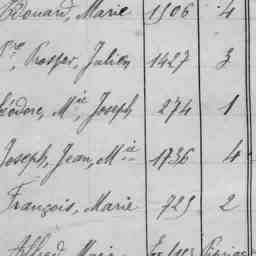 Édouard, Marie 1906 4
Pre, Prosper, Julien 1427 3
Théodore, Mie, Joseph 274 1
Joseph, Jean, Mie 1736 4
François, Marie 729 2
Alfred, Marie